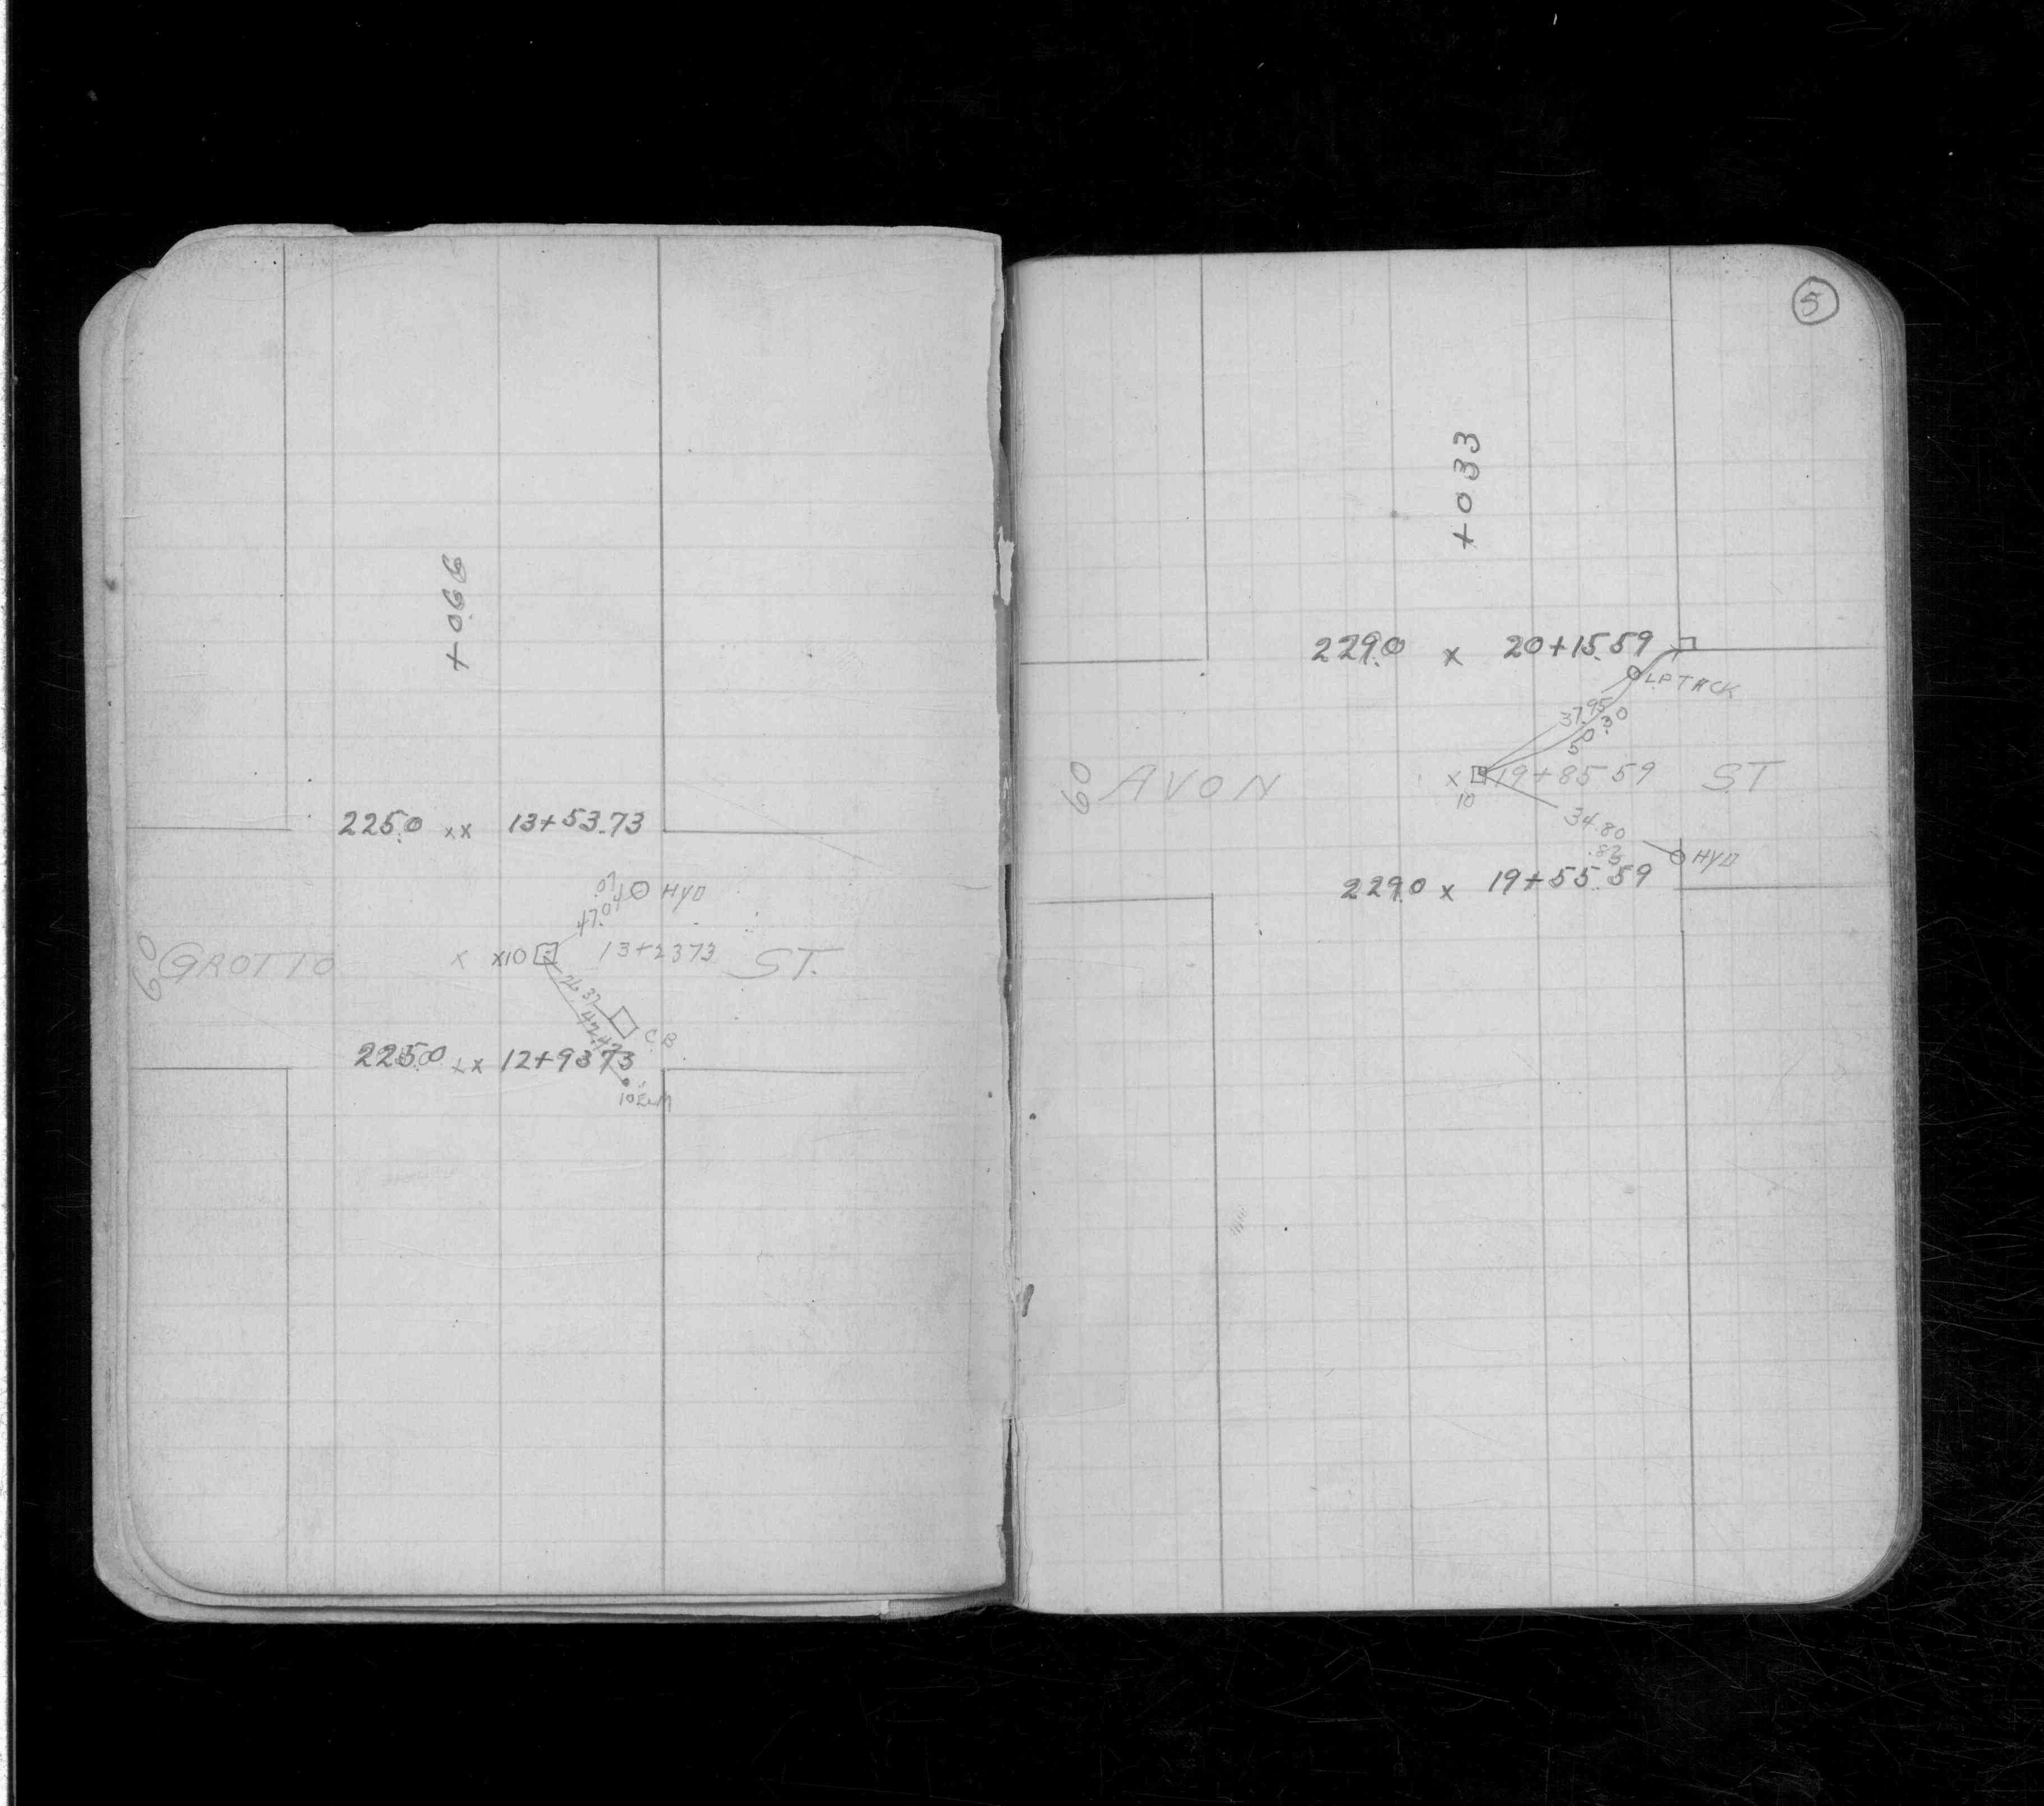 +066
225.0 xx 13+53.73
.07
47.04 HYD
60 GROTTO x x10 13+23.73 ST.
26.37
42.47 C.B
225.0 xx 12+93.73
10" Elm
5
+033
229.0 x 20+15.59
LP TACK
37.95
50.30
60 AVON x 19+85.59 ST
10
34.80
.83
HYD
229.0 x 19+55.59